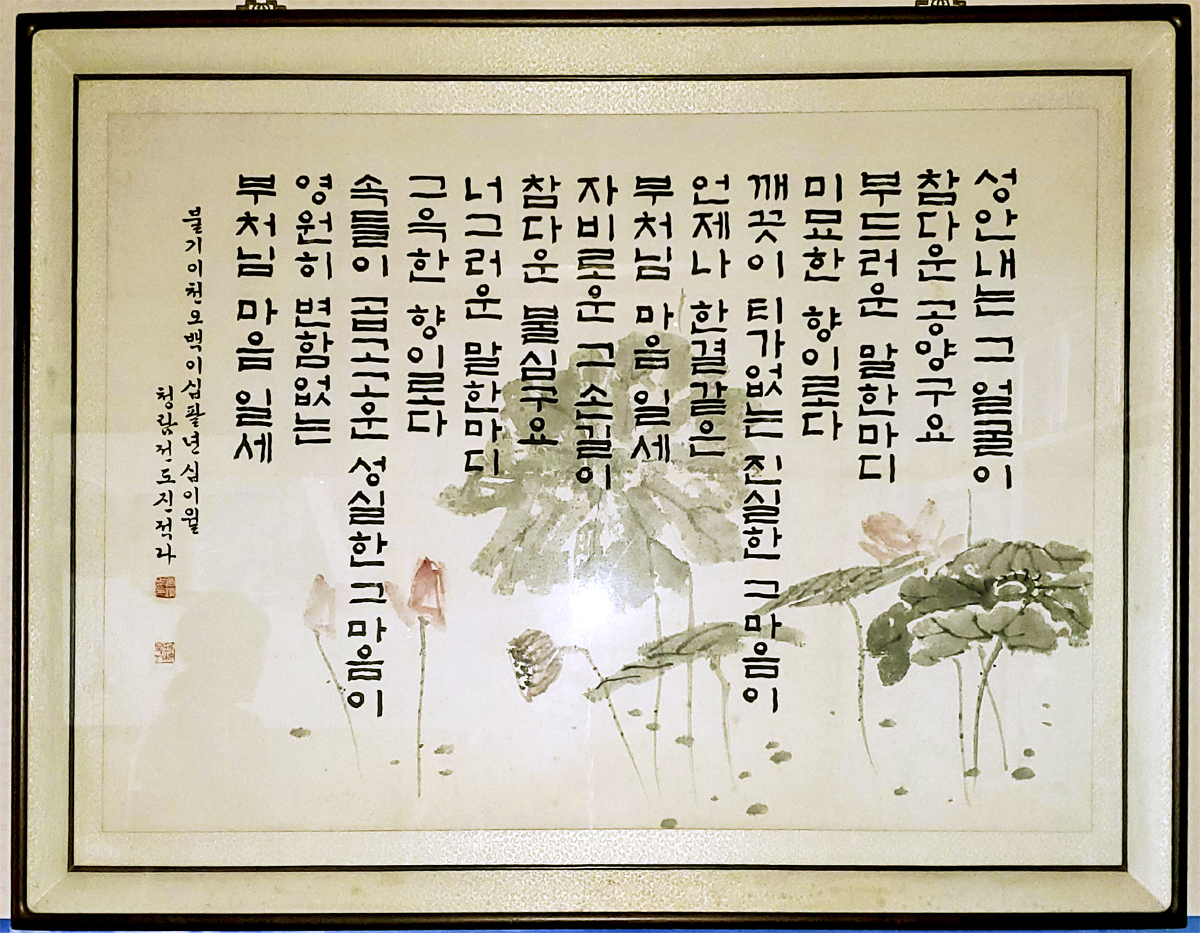 성안내는 그 얼굴이
참다운 공양구요
부드러운 말한마디
미묘한 향이로다
깨끗이 티가없는 진실한 그마음이
언제나 한결같은
부처님 마음 일세
자비로운 그 손길이
참다운 불심구요
너그러운 말한마디
그윽한 향이로다
속틀이 곱고고운 성실한 그마음이
영원히 변함없는
부처님 마음 일세
불기이천오백이십팔년십이월
청람전도진적다